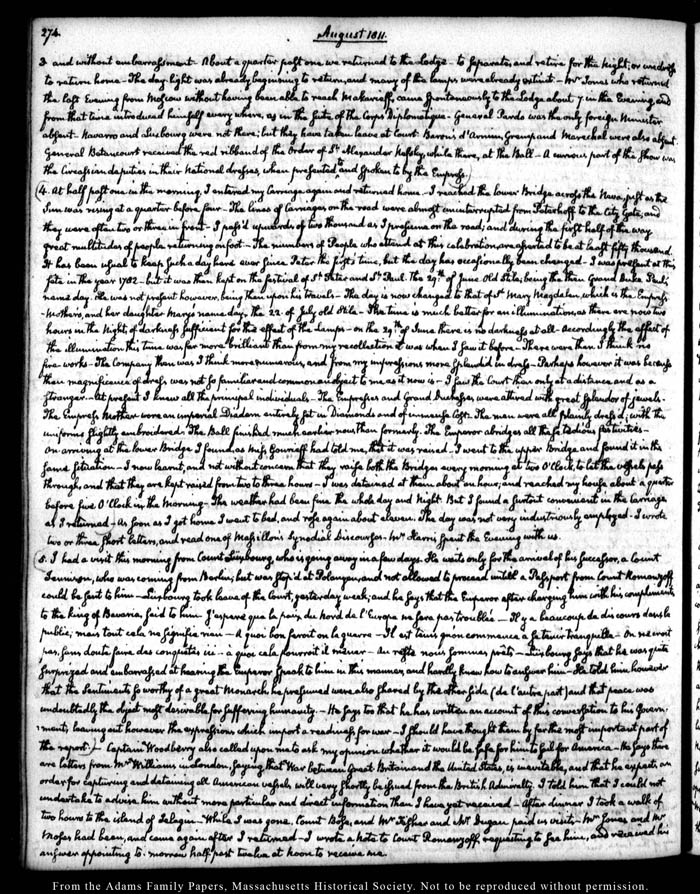 274.
August 1811.
3 and without embarrassment. About a quarter past one we returned to the Lodge - to separate, and retire for the Night; or we drifts
to return home - The day light was already beginning to return, and many of the lamps were already extinct - Mr Jones who returned
the last Evening from Moscow without having been able to reach Makarieff, came spontaneously to the Lodge about 7 in the Evening, and
from that time introduced himself every where, as in the suite of the Corps Diplomatique - General Pardo was the only foreign Minister
absent. Navarro and Luxbourg were not there; but they have taken leave at Court. Barons d'Arnim, and Marechal were also absent.
General Betancourt received the red ribband of the Order of St. Alexander Nefsky, while there, at the Ball - A curious part of the Show was
the Circassian deputies in their National dresses, when presented to and spoken to by the Empress.
4. At half past one in the morning, I entered my Carriage again and returned home - I reached the lower Bridge across the Neva, just as the
Sun was rising at a quarter before four - The lines of Carriages on the road were almost uninterrupted from Peterhoff to the City Gate, and
they were often two or three in front - I pass'd upwards of two thousand as I presume on the road; and during the first half of the way
great multitudes of people returning on foot - The numbers of People who attend at this celebration, are asserted to be at least fifty thousand.
It has been usual to keep such a day here ever since Peter the first's time, but the day has occasionally been changed. I was present at this
fete in the year 1782 - but it was then kept on the festival of St. Peter and St. Paul. The 29th. of June Old Stile; being the then Grand Duke Paul's
name day. He was not present however, being then upon his travels - The day is now changed to that of St. Mary Magdalen, which is the Empress-
-Mothers, and her daughter Mary's name day, the 22. of July old Stile - The time is much better for an illumination, as there are now two
hours in the Night of darkness sufficient for the effect of the Lamps - on the 29th. of June there is no darkness at all - Accordingly the effect of
the illumination this time was far more brilliant than from my recollection it was when I saw it before - There were then I think no
fire-works - The Company then was I think more numerous, and from my impressions more splendid in dress - Perhaps however it was because
then magnificence of dress was not so familiar and common an object to me as it now is - I saw the Court then only at a distance and as a
stranger - At present I knew all the principal individuals. The Empresses and Grand Duchesses, were attired with great splendor of jewels.
The Empress Mother wore an imperial Diadem entirely set in Diamonds and of immense Cost. The men were all plainly dress'd, with the
uniforms slightly embroidered. The Ball finished much earlier now than formerly. The Emperor abridges all these tedious festivities -
On arriving at the lower Bridge I found, as Miss Gourieff had told me, that it was raised. I went to the upper Bridge and found it in the
same situation - I now learnt, and not without concern that they raise both the Bridges every morning at two O'Clock, to let the vessels pass
through, and that they are kept raised from two to three hours - I was detained at them about an hour, and reached my house about a quarter
before five O'Clock in the Morning - The weather had been fine the whole day and Night. But I found a surtout convenient in the Carriage
as I returned - As soon as I got home I went to bed, and rose again about eleven. The day was not very industriously employed - I wrote
two or three short letters, and read one of Massillon's Synodial Discourses - Mr Harris spent the Evening with us.
5. I had a visit this morning from Count Luxbourg, who is going away in a few days. He waits only for the arrival of his Successor, a Count
who was coming from Berlin; but was stop'd at Polangen, and not allowed to proceed until a Passport from Count Romanzoff
could be sent to him - Luxbourg took leave of the Court, yesterday week; and he says that the Emperor after charging him with his compliments
to the king of Bavaria, said to him "J'espere que la paix du Nord de l'Europe ne sera pas troublée - Il y a beaucoup de discours dans le
public, mais tout cela ne signifie rien - A quoi bon feroit on la guerre - on ne croit
pas, sans doute faire des conquetes ici - à quoi cela pourroit il mener - Au reste nous sommes prêts - Luxbourg says that he was quite
surprized and embarrassed at hearing the Emperor speak to him in this manner, and hardly knew how to answer him - He told him however
that the Sentiments so worthy of a great Monarch he presumed were also shared by the other side (de l'autre part) and that peace was
undoubtedly the object most desirable for suffering humanity. - He says too that he has written an account of this conversation to his Govern-
-ment; leaving out however the expressions which import a readiness for war - I should have thought them by far the most important part of
the report.) - Captain Woodberry also called upon me to ask my opinion whether it would be safe for him to sail for America - He says there
are letters from Mr Williams in London, saying that War between Great Britain and the United States, is inevitable, and that he expects an
order for capturing and detaining all American vessels will very shortly be issued from the British Admiralty. I told him that I could not
undertake to advise him without more particular and direct information than I have yet received - After dinner I took a walk of
two hours to the island of Jelagin - While I was gone, Count Bose, and Mr Fisher and Mr Dugan paid us visits - Mr Jones and Mr
Moses had been, and came again after I returned - I wrote a note to Count Romanzoff, requesting to see him, and received his
answer appointing to-morrow half past twelve at noon to receive me.
From the Adams Family Papers, Massachusetts Historical Society. Not to be reproduced without permission.